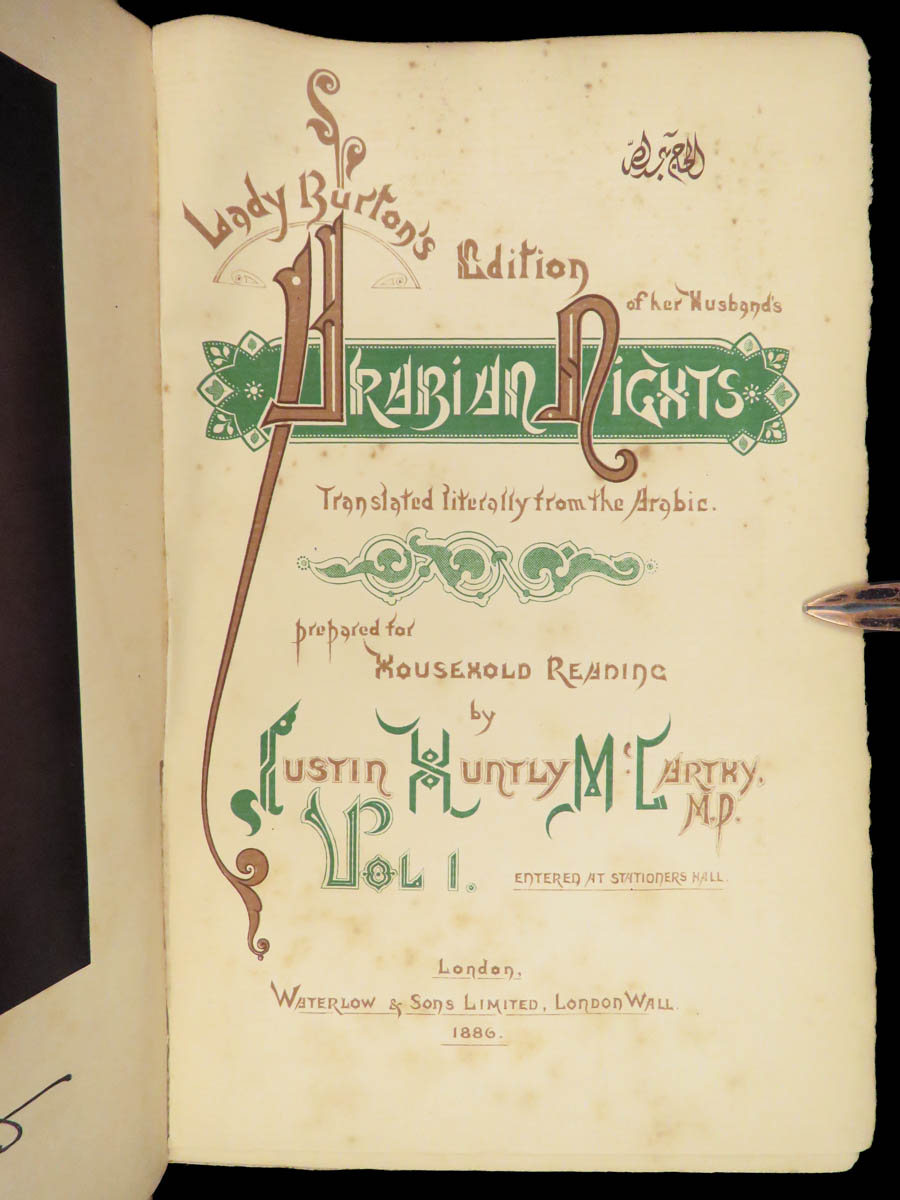 الحاج عبد الله
Lady Burton's
Edition
of her Husband's
ARABIAN NIGHTS
Translated literally from the Arabic.
prepared for
HOUSEHOLD READING
by
JUSTIN HUNTLY McCARTHY,
M.P.
VOL 1.
ENTERED AT STATIONERS HALL.
London,
WATERLOW & SONS LIMITED, LONDON WALL.
1886.